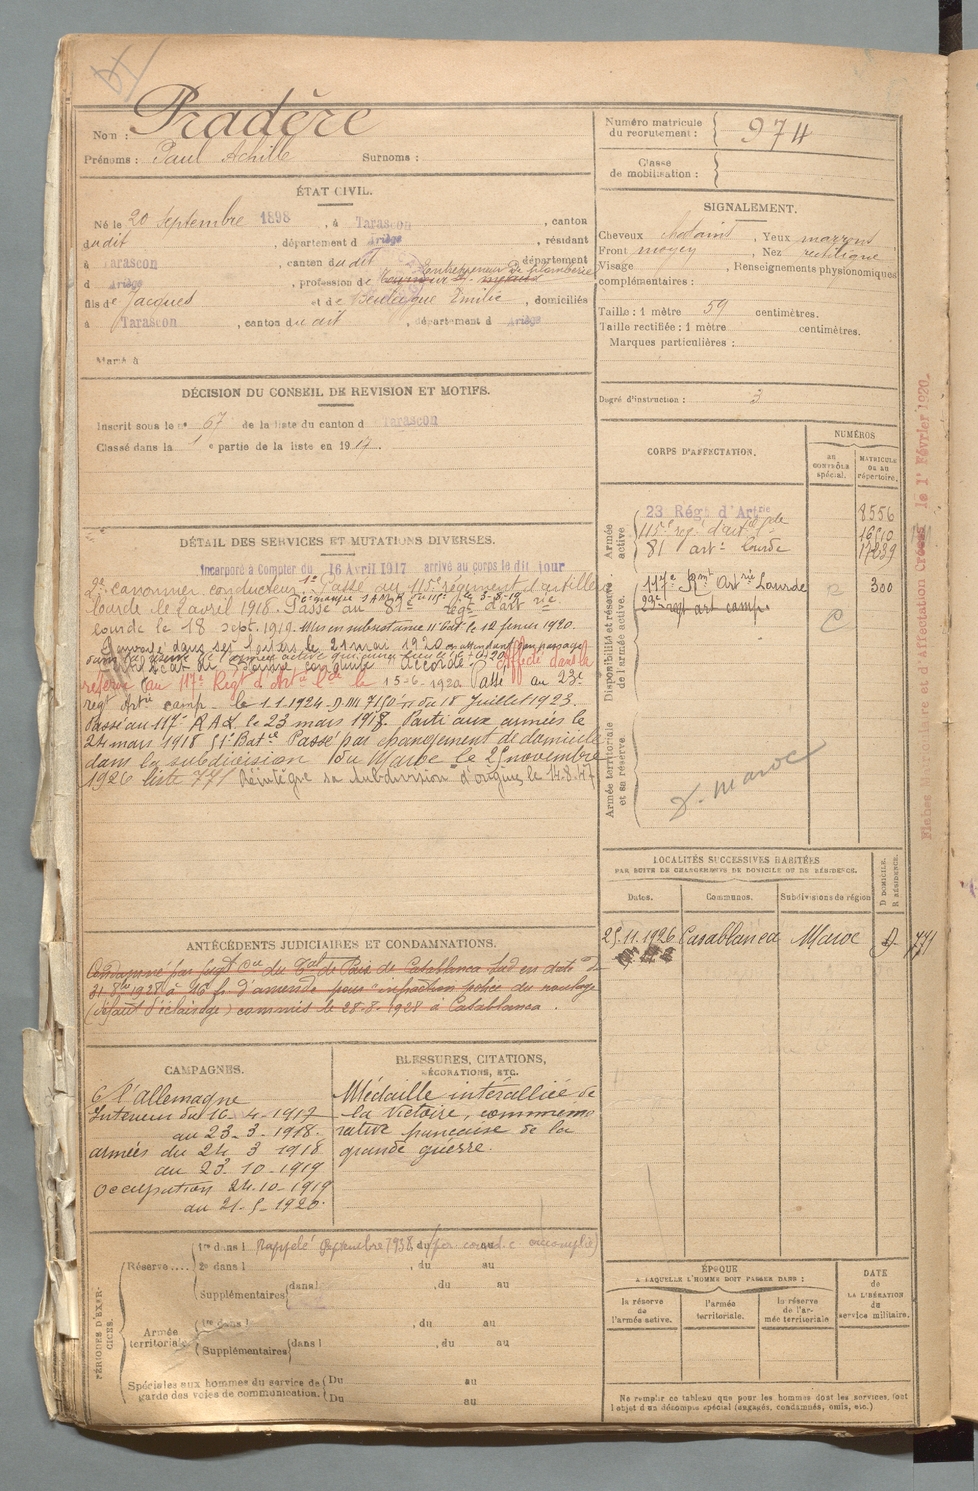 Nom : Pradère
Prénoms : Paul Achille Surnoms :
Numéro matricule du recrutement : 974
Classe de mobilisation :
ÉTAT CIVIL.
Né le 20 Septembre 1898, à Tarascon, canton
dudit, département d Ariège, résidant
à Tarascon, canton dudit, département
d Ariège, profession de Entrepreneur de plomberie
fils de Jacques et de Emilie, domiciliés
à Tarascon, canton dudit, département d Ariège
Marié à
DÉCISION DU CONSEIL DE REVISION ET MOTIFS.
Inscrit sous le n° 67 de la liste du canton d Tarascon
Classé dans la 1e partie de la liste en 1917.
SIGNALEMENT.
Cheveux chatains, Yeux marrons
Front moyen, Nez rectiligne
Visage , Renseignements physionomiques
complémentaires :
Taille : 1 mètre 59 centimètres.
Taille rectifiée : 1 mètre centimètres.
Marques particulières :
Degré d'instruction : 3
DÉTAIL DES SERVICES ET MUTATIONS DIVERSES.
Incorporé à Compter du 16 Avril 1917 arrivé au corps le dit jour
2e canonnier conducteur Passé au 115e régiment d'artillerie
lourde le 2 avril 1918. Passé au 81e reg d'art rie
lourde le 18 sept. 1919. le 12 février 1920.
Renvoyé dans ses foyers le 21 mai 1920 en attendant son passage
dans la réserve de l'armée active
Certificat de Bonne conduite Accordé. Affecté dans la
réserve au 117e Régt d'Artie Lde le 15-6-1920 Passé au 23e
régt Artie camp. le 1.1.1924 du 18 Juillet 1923.
Passé au 117e R A L le 23 mars 1918. Parti aux armées le
24 mars 1918 51e Batie Passé par changement de domicile
dans la subdivision du Maroc le 25 novembre
1926 liste 771 Réintègre sa subdivision d'origine le 14.8.47
CORPS D'AFFECTATION.
NUMÉROS
au contrôle spécial.
matricule ou au répertoire.
Armée active
23 Rég. d'Artrie 8556
115e reg. d'artie lde
81 arte lourde 17239
Disponibilité et réserve de l'armée active.
117e Rgmt Artrie Lourde 300
23e regt art camp.
Armée territoriale et sa réserve.
D. Maroc
Fiches Matriculaire et d'Affectation Créées le 1er Février 1920
LOCALITÉS SUCCESSIVES HABITÉES
PAR SUITE DE CHANGEMENTS DE DOMICILE OU DE RÉSIDENCE.
Dates. Communes. Subdivisions de région D DOMICILE. R RÉSIDENCE.
25.11.1926 Casablanca Maroc D 771
ANTÉCÉDENTS JUDICIAIRES ET CONDAMNATIONS.
Condamné par jugt du Tal de Paix de Casablanca Sud en date du
31 8bre 1928 à 16 fr. d'amende pour infraction police du roulage
(défaut d'éclairage) commis le 28-8-1928 à Casablanca.
CAMPAGNES.
C/ l'allemagne
Intérieur du 16-4-1917
au 23-3-1918.
armées du 24 3 1918
au 23-10-1919
Occupation 24-10-1919
au 21-5-1920.
BLESSURES, CITATIONS,
DÉCORATIONS, ETC.
Médaille interalliée de
la Victoire, commémo
rative française de la
grande guerre.
PÉRIODES D'EXERCICES.
Réserve....
1re dans l Rappelé Septembre 1938 du au
2e dans l , du au
Supplémentaires dans l , du au
Armée territoriale
1re dans l , du au
Supplémentaires dans l , du au
Spéciales aux hommes du service de garde des voies de communication. Du au
Du au
ÉPOQUE
A LAQUELLE L'HOMME DOIT PASSER DANS :
la réserve de l'armée active. l'armée territoriale. la réserve de l'armée territoriale
DATE de LA LIBÉRATION du service militaire.
Ne remplir ce tableau que pour les hommes dont les services font
l'objet d'un décompte spécial (engagés, condamnés, omis, etc.)